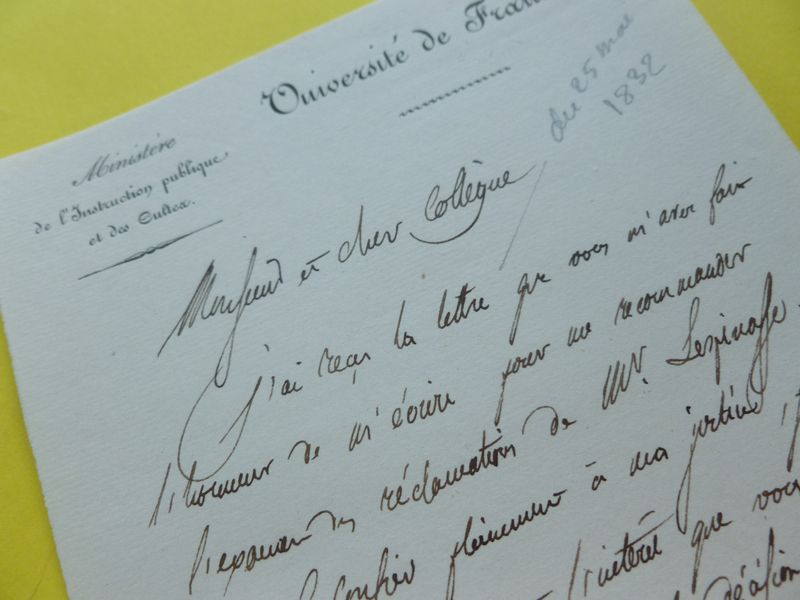 Université de Fran
du 25 mai
1832
Ministère
de l'Instruction publique
et des Cultes.
Monsieur et cher Collègue
J'ai reçu la lettre que vous m'avez fait
l'honneur de m'écrire pour me recommander
l'examen des réclamations de Mr. Lespinasse.
pleinement à ma justice,
l'intérêt que vous